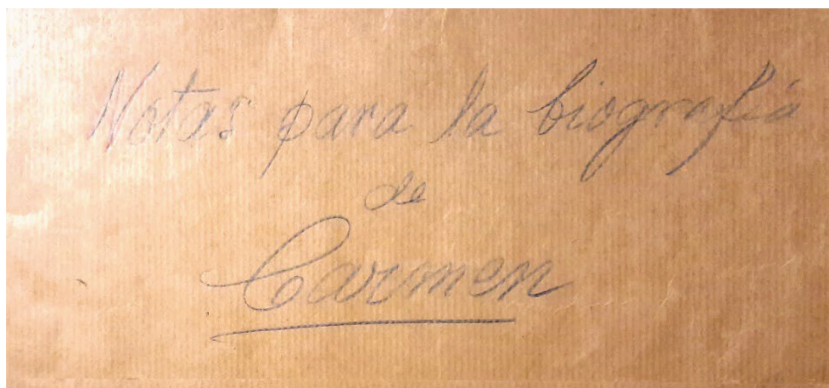 Notas para la biografía
de
Carmen